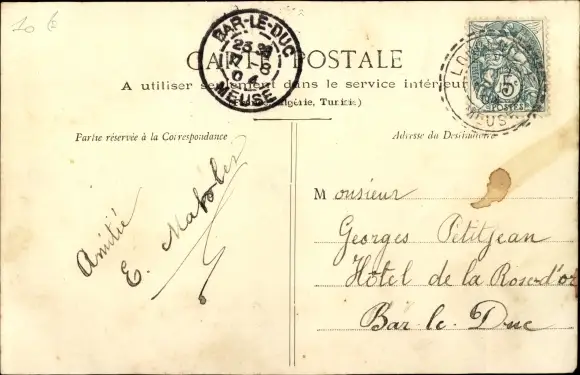 10 €
BAR-LE-DUC
23
8
04
MEUSE
CARTE POSTALE
A utiliser seulement dans le service intérieur
Algérie, Tunisie)
5
POSTES
MEUSE
Partie réservée à la Correspondance
Adresse du Destinataire
Amitié
E.
Monsieur
Georges Petitjean
Hôtel de la Rose d'or
Bar-le-Duc